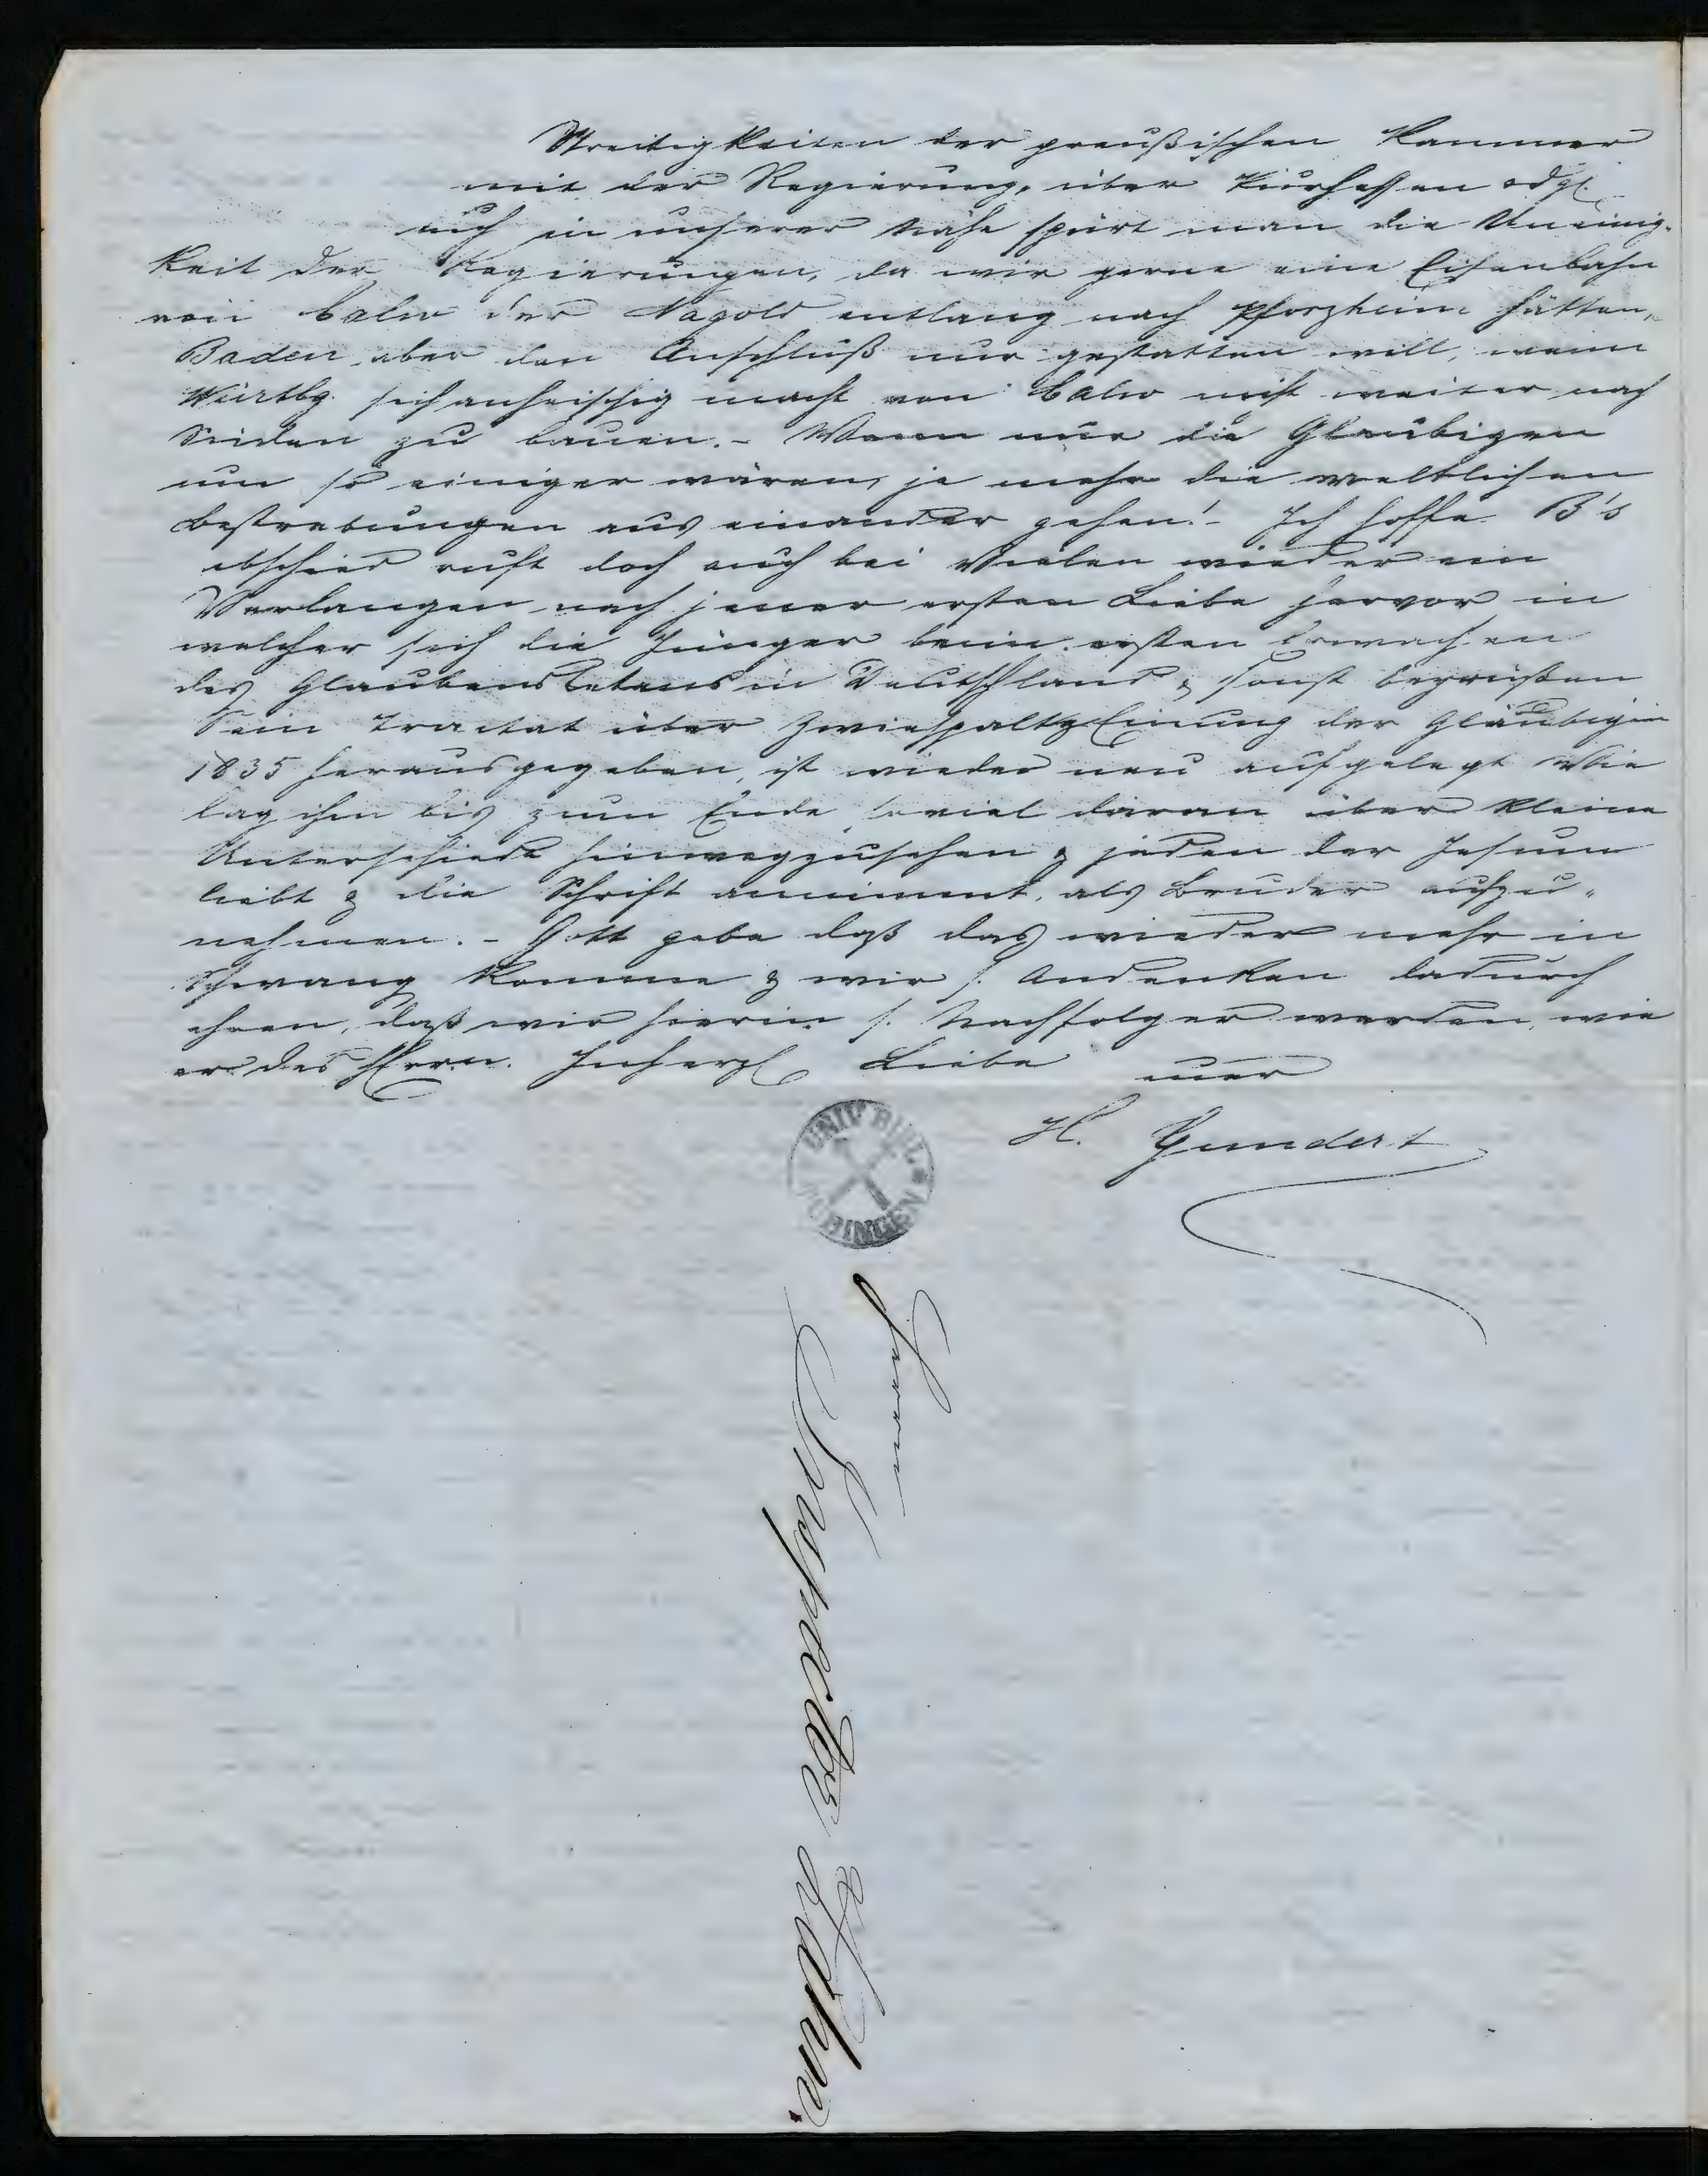 Streitigkeiten der preußischen Kammer
mit der Regierung, über Kurhessen odgl.
auch in unserer Nähe spürt man die Uneinig-
keit der Regierungen, da wir gerne eine Eisenbahn
von Calw der Nagold entlang nach Pforzheim hätten,
Baden aber den Anschluß nur gestatten will, wenn
Würtbg. sich anheischig macht von Calw nicht weiter nach
Süden zu bauen. - Wenn nur die Gläubigen
um so einiger wären, je mehr die weltlichen
Bestrebungen aus einander gehen! - Ich hoffe B's
Abschied ruft doch auch bei Vielen wieder ein
Verlangen nach jener ersten Liebe hervor in
welcher sich die Jünger beim ersten Erwachen
des Glaubenslebens in Deutschland & sonst begrüßten
Sein Tractat über Zwiespalt & Einung der Gläubigen
1835 herausgegeben, ist wieder neu aufgelegt Wie
lag ihm bis zum Ende soviel daran über kleine
Unterschiede hinwegzusehen & jeden der Jesum
liebt & die Schrift annimmt, als Bruder aufzu-
nehmen. - Gott gebe daß das wieder mehr in
Schwang komme & wir s. Andenken dadurch
ehren, daß wir hierin s. Nachfolger werden, wie
er des Herrn. In herzl Liebe euer
H. Gundert
UNIV. BIBL. TÜBINGEN
Herrn